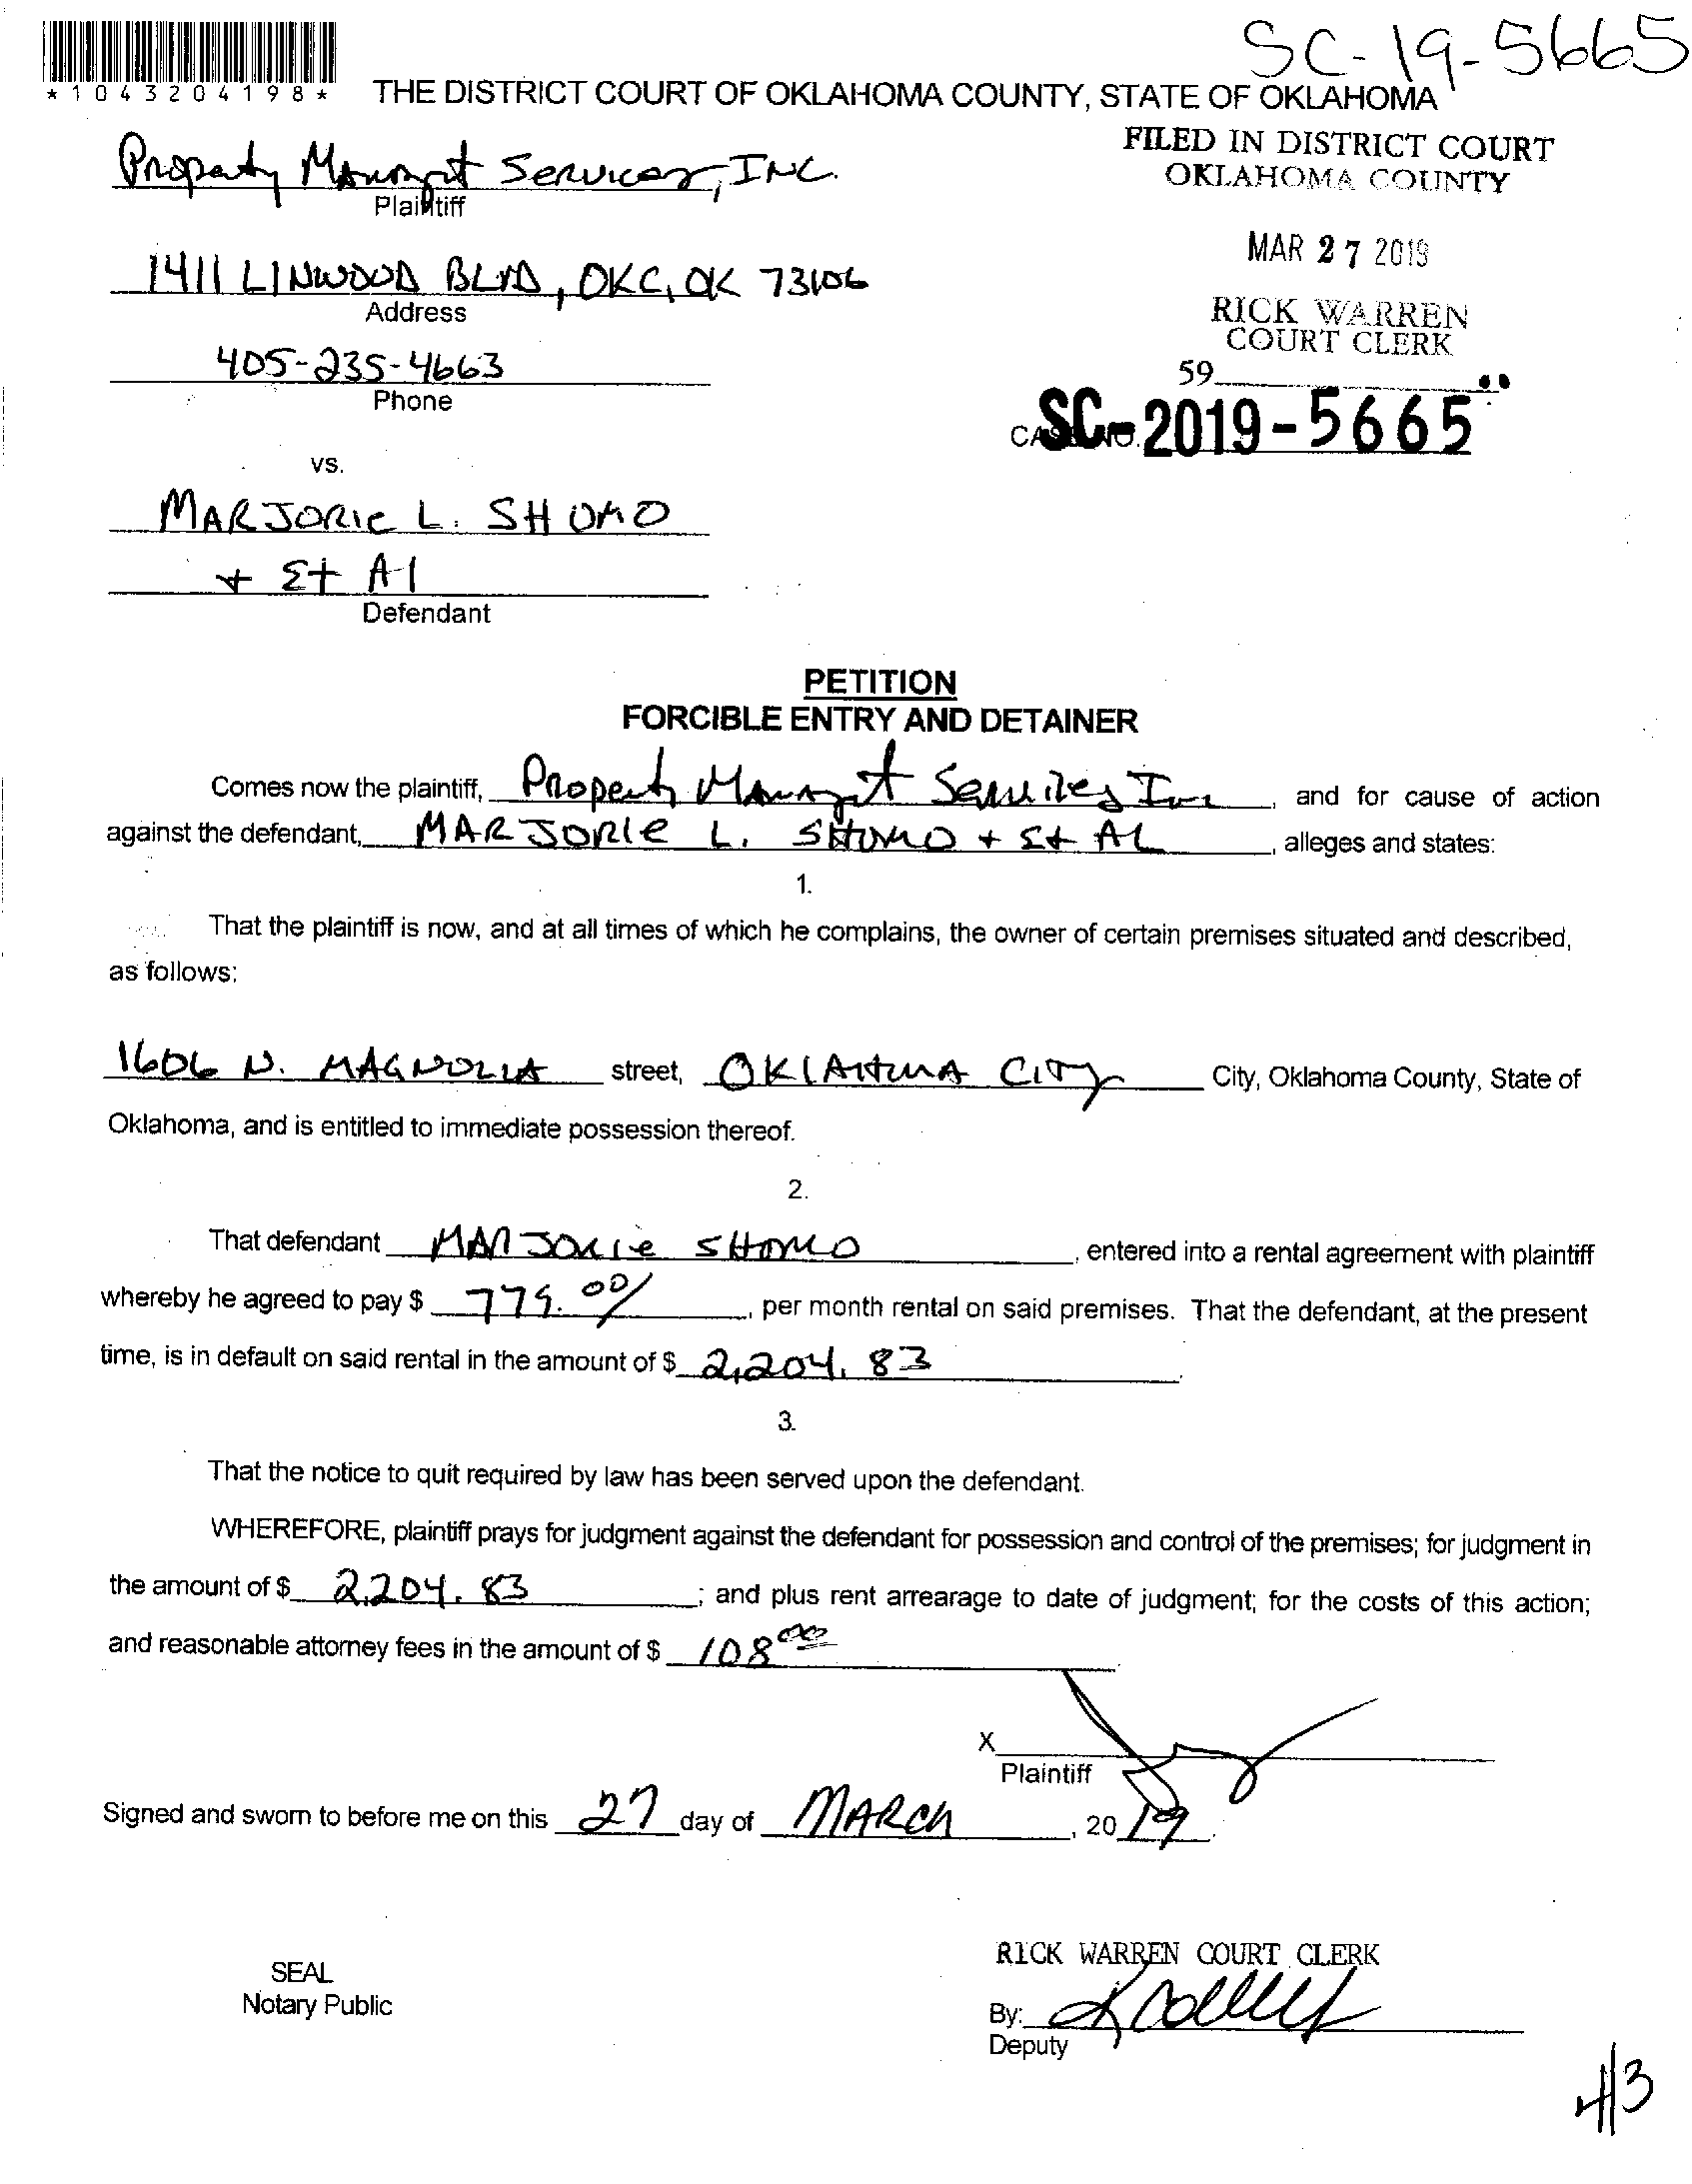 SC-19-5665
*1043204198*
THE DISTRICT COURT OF OKLAHOMA COUNTY, STATE OF OKLAHOMA
FILED IN DISTRICT COURT
OKLAHOMA COUNTY
Property Managmt Services, INC.
Plaintiff
MAR 27 2019
1411 LINWOOD BLVD, OKC, OK 73106
Address
RICK WARREN
COURT CLERK
405-235-4663
Phone
59
CASE NO. SC-2019-5665
vs.
MARJORIE L. SHOMO
+ Et Al
Defendant
PETITION
FORCIBLE ENTRY AND DETAINER
Comes now the plaintiff, Property Managmt Services Inc, and for cause of action
against the defendant, MARJORIE L. SHOMO + Et AL, alleges and states:
1.
That the plaintiff is now, and at all times of which he complains, the owner of certain premises situated and described,
as follows:
1606 N. MAGNOLIA street, OKlAHOMA CITy City, Oklahoma County, State of
Oklahoma, and is entitled to immediate possession thereof.
2.
That defendant MARJORIE SHOMO, entered into a rental agreement with plaintiff
whereby he agreed to pay $ 779.00/, per month rental on said premises. That the defendant, at the present
time, is in default on said rental in the amount of $ 2,204.83.
3.
That the notice to quit required by law has been served upon the defendant.
WHEREFORE, plaintiff prays for judgment against the defendant for possession and control of the premises; for judgment in
the amount of $ 2,204.83; and plus rent arrearage to date of judgment; for the costs of this action;
and reasonable attorney fees in the amount of $ 108 00.
X
Plaintiff
Signed and sworn to before me on this 27 day of MARCH, 20 19.
RICK WARREN COURT CLERK
SEAL
Notary Public
By:
Deputy
#3